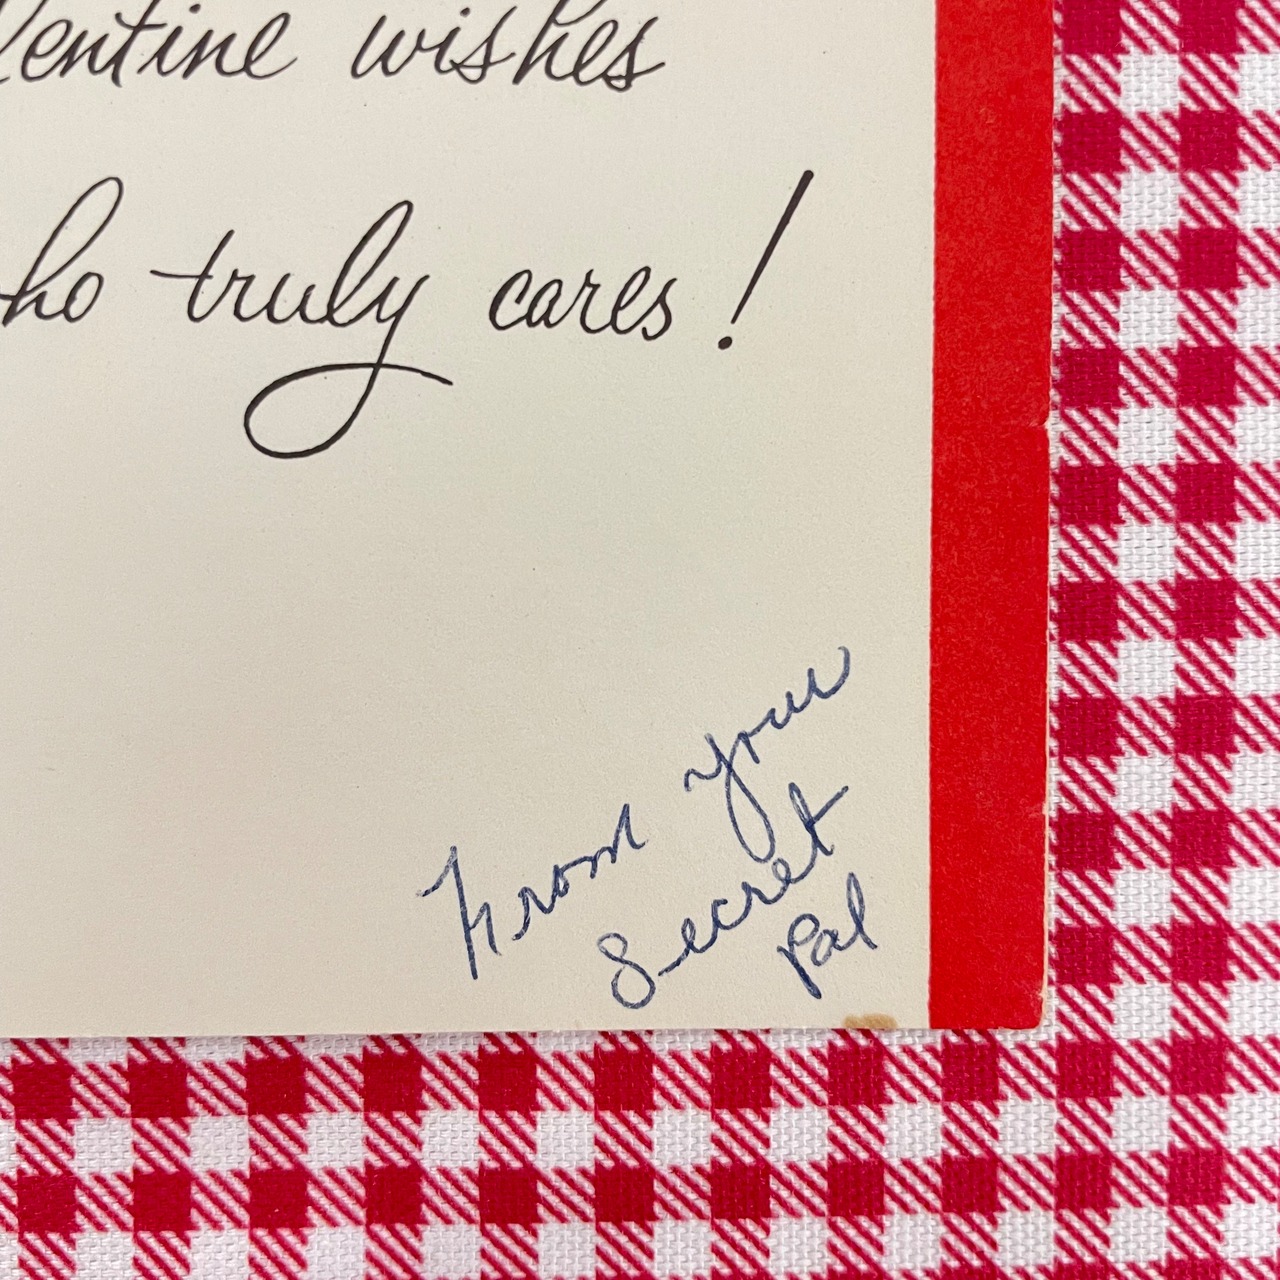 lentine wishes
ho truly cares!
From your
Secret
Pal